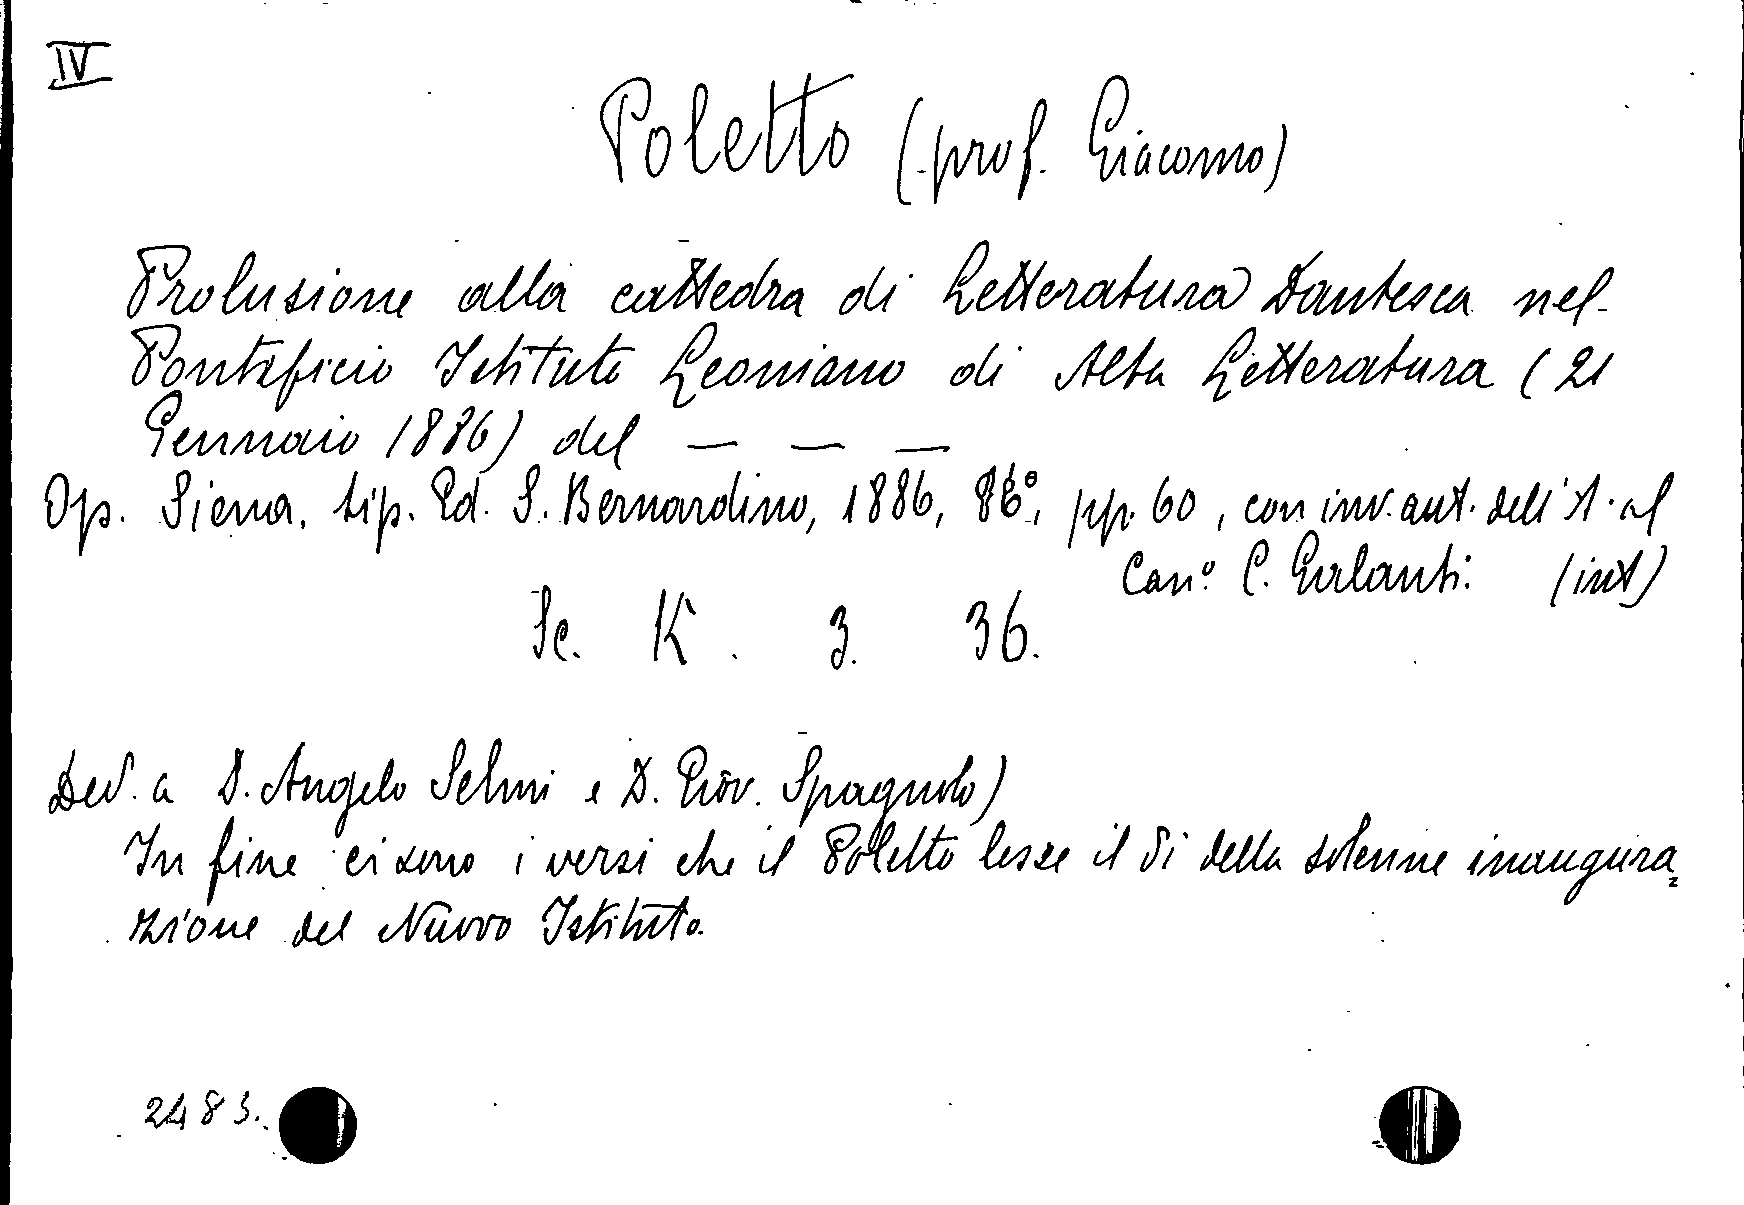 IV
Poletto (prof. Giacomo)
Prolusione alla cattedra di Letteratura Dantesca nel
Pontificio Istituto Leoniano di Alta Letteratura (21
Gennaio 1886) del — — —
Op. Siena, tip. Ed. S. Bernardino, 1886, 8º, pp. 60, con inv. aut. dell'A. al
Canº C. Galanti. (int)
Sc. K. 3. 36.
Ded. a D. Angelo Selmi e D. Giov. Spagnolo)
In fine ci sono i versi che il Poletto lesse il dì della solenne inaugura=
zione del Nuovo Istituto.
2483.